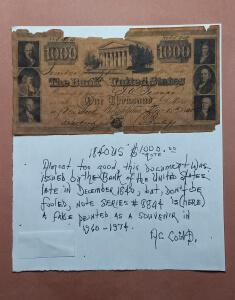 1000
1000
The Bank
of the
United States
One Thousand
1840 US $1000.00
NOTE
ALMOST TOO GOOD THIS DOCUMENT WAS
ISSUED BY THE BANK OF THE UNITED STATES
LATE IN DECEMBER 1840, BUT, DON'T BE
FOOLED, NOTE SERIES # 8894 IS (HERE)
A FAKE PRINTED AS A SOUVENIR IN
1960-1974.